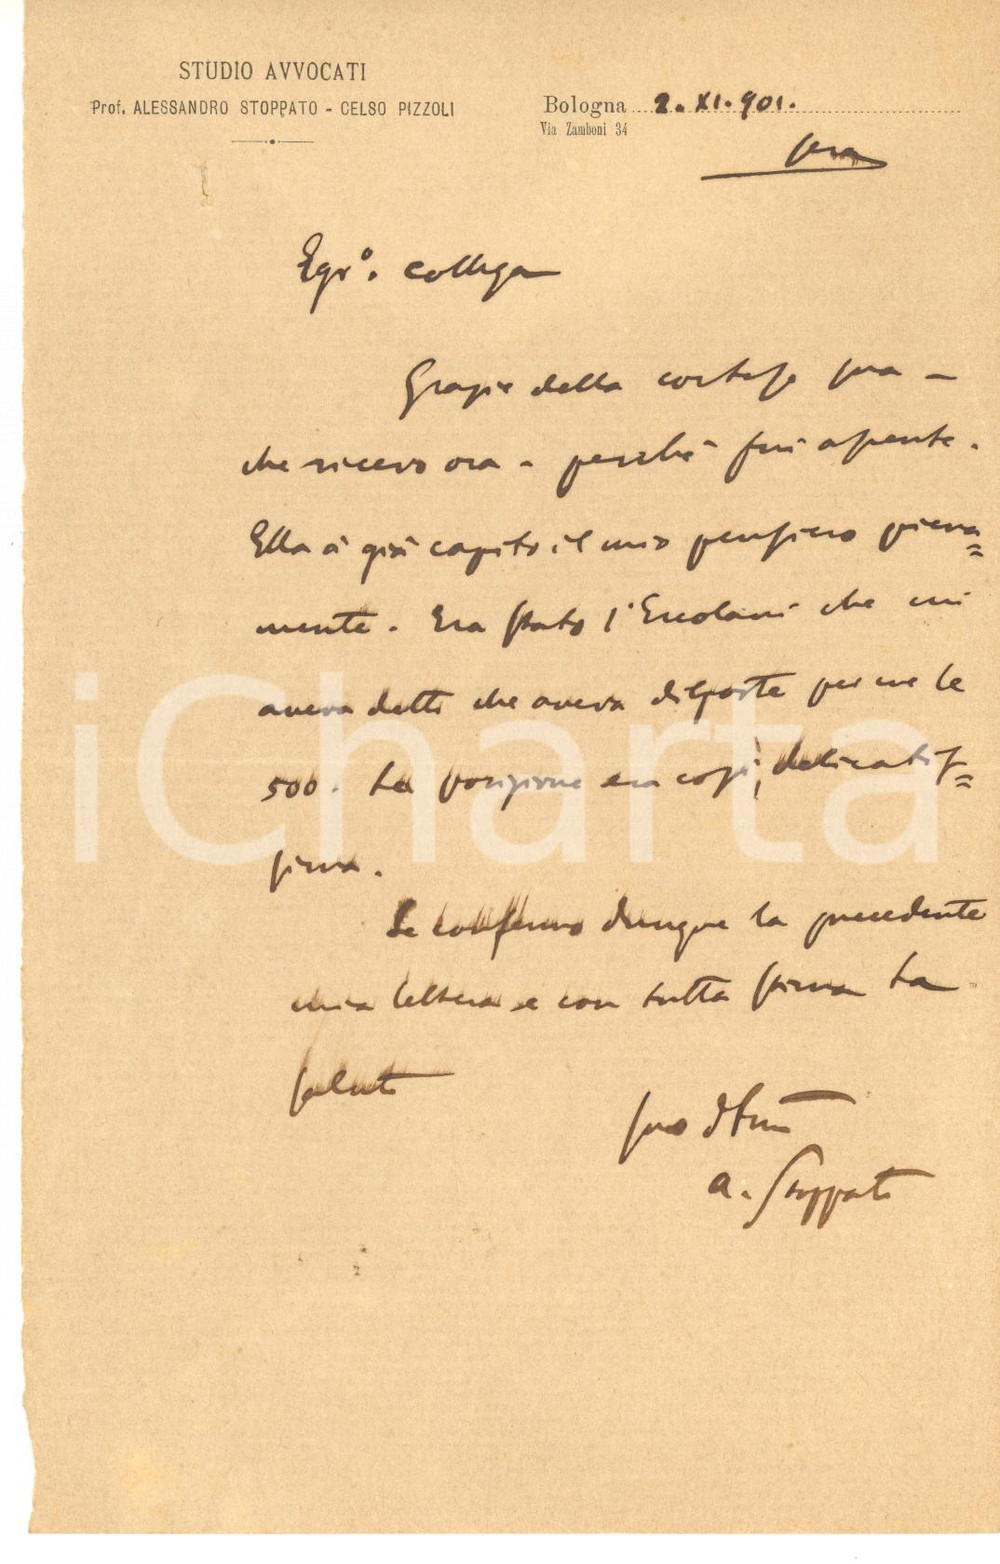 STUDIO AVVOCATI
Prof. ALESSANDRO STOPPATO - CELSO PIZZOLI
Bologna 2. XI. 901.
Via Zamboni 34
sera
Egr°. collega
Grazie della cortese sua –
che ricevo ora – perché fui assente.
Ella à già capito il mio pensiero piena=
mente. Era stato l'Ercolani che mi
aveva detto che aveva disposte per me le
500. La posizione era così, delicatis=
sima.
Le confermo dunque la precedente
mia lettera e con tutta stima La
saluto
suo
A. Stoppato
iCharta